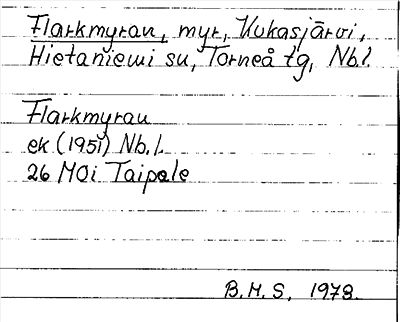 Flarkmyran, myr, Kukasjärvi,
Hietaniemi sn, Torneå tg, Nb.l.
Flarkmyran
ek (1951) Nb.l.
26 MOi Taipale
B.M.S, 1978.